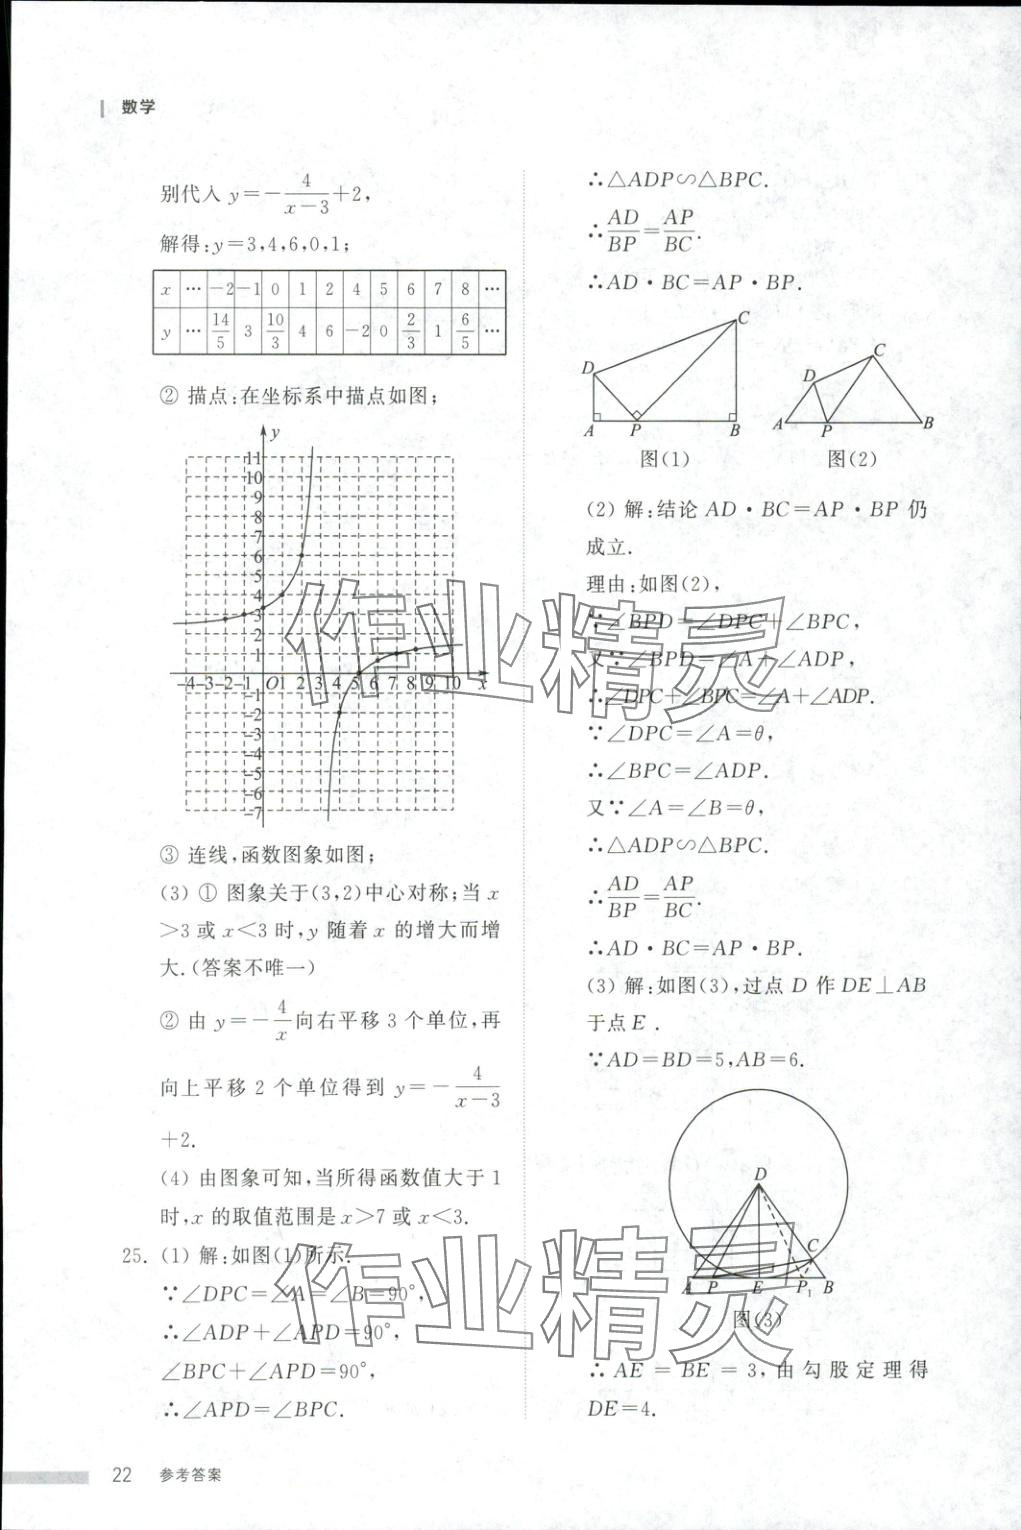 数学
别代入 y=-4/(x-3)+2,
解得:y=3,4,6,0,1;
x … -2 -1 0 1 2 4 5 6 7 8 …
y … 14/5 3 10/3 4 6 -2 0 2/3 1 6/5 …
② 描点:在坐标系中描点如图;
y
11
10
9
8
7
6
5
4
3
2
1
-4 -3 -2 -1 O 1 2 3 4 5 6 7 8 9 10 x
-1
-2
-3
-4
-5
-6
-7
③ 连线,函数图象如图;
(3) ① 图象关于(3,2)中心对称;当 x
>3 或 x<3 时,y 随着 x 的增大而增
大.(答案不唯一)
② 由 y=-4/x 向右平移 3 个单位,再
向上平移 2 个单位得到 y=-4/(x-3)
+2.
(4) 由图象可知,当所得函数值大于 1
时,x 的取值范围是 x>7 或 x<3.
25. (1) 解:如图(1)所示.
∵∠DPC=∠A=∠B=90°,
∴∠ADP+∠APD=90°,
∠BPC+∠APD=90°,
∴∠APD=∠BPC.
∴△ADP∽△BPC.
∴AD/BP=AP/BC.
∴AD·BC=AP·BP.
D C A P B
图(1)
D C A P B
图(2)
(2) 解:结论 AD·BC=AP·BP 仍
成立.
理由:如图(2),
∵∠BPD=∠DPC+∠BPC,
又∵∠BPD=∠A+∠ADP,
∴∠DPC+∠BPC=∠A+∠ADP.
∵∠DPC=∠A=θ,
∴∠BPC=∠ADP.
又∵∠A=∠B=θ,
∴△ADP∽△BPC.
∴AD/BP=AP/BC.
∴AD·BC=AP·BP.
(3) 解:如图(3),过点 D 作 DE⊥AB
于点E.
∵AD=BD=5,AB=6.
D
C
A P E P₁ B
图(3)
∴ AE = BE = 3,由勾股定理得
DE=4.
作业精灵
作业精灵
22 参考答案